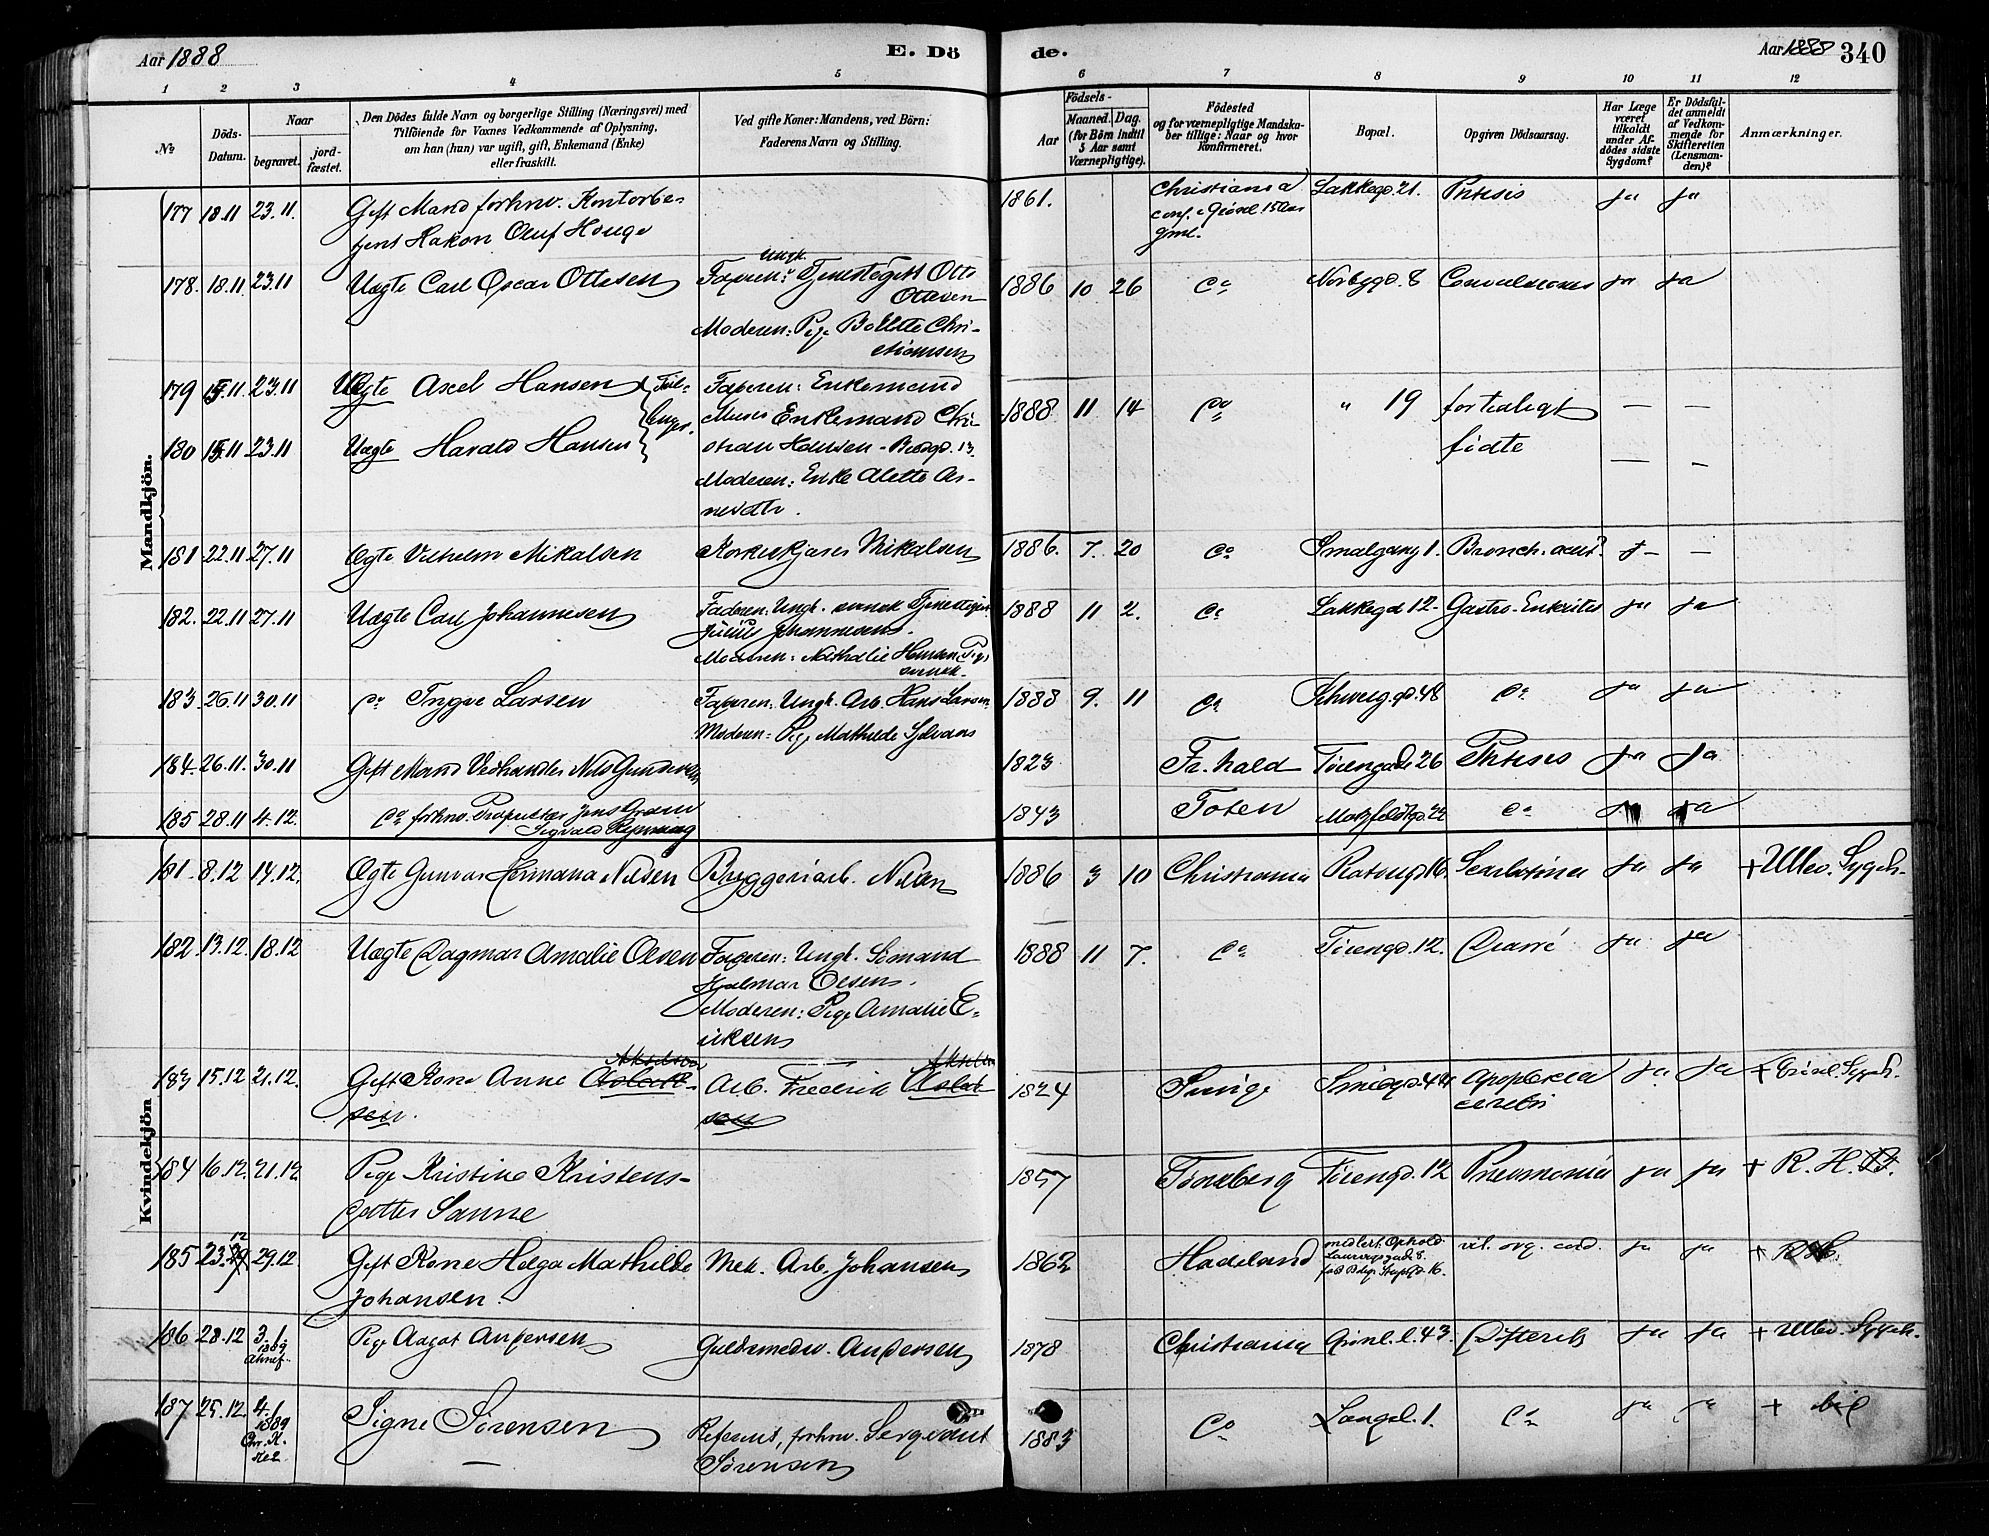 Aar 1888
E. Dö
de.
Aar 1888
340
1 2 3 4 5 6 7 8 9 10 11 12
No
Döds-
Datum.
Naar
begravet.
jord-
fæstet.
Den Dödes fulde Navn og borgerlige Stilling (Næringsvei) med
Tilföiende for Voxnes Vedkommende af Oplysning,
om han (hun) var ugift, gift, Enkemand (Enke)
eller fraskilt.
Ved gifte Koner: Mandens, ved Börn:
Faderens Navn og Stilling.
Födsels-
Aar
Maaned.
Dag.
(for Börn indtil
5 Aar samt
Værnepligtige).
Födested
og for værnepligtige Mandska-
ber tillige: Naar og hvor
konfirmeret.
Bopæl.
Opgiven Dödsaarsag.
Har Læge
været
tilkaldt
under Af-
dödes sidste
Sygdom?
Er Dödsfal-
det anmeldt
af Vedkom-
mende for
Skifteretten
(Lensman-
den)?
Anmærkninger.
Mandkjön.
177 18.11 23.11. Gift Mand forhnv. Kontorbe-
tjent Hakon Oluf Hauge
1861. Christiania Lakkegd. 21. Phtisis ja ja
conf. i Grönl. 15 Aar
gml.
178. 18.11 23.11 Uægte Carl Oscar Ottesen
Faderen: Ungk. Tjenestegut Otto
Ottesen
Moderen: Pige Bollette Chri-
stiansen
1886 10 26 do Norbygd. 8 Convulsiones ja ja
179 15.11 23.11 Uægte Axel Hansen
Tvil-
linger.
Faderen: Enkemand
Enkemand Chri-
stian Hansen
1888 11 14 do " 19 fortidligt — —
180 15.11 23.11 Uægte Harald Hansen
Moderen: Enke Alette Ar-
nevdtr.
födte — —
181 22.11 27.11 Ægte Vilhelm Mikalsen
Korkeskjærer Mikalsen
1886. 7. 20 do Smalgang 1. Bronch. acut. j— —
182. 22.11 27.11 Uægte Carl Johannesen
Faderen: Ungk. svensk Tjenestegut
Julius Johannesen.
Moderen: Nathalie Hansen, Pige
svensk.
1888 11 2. do Lakkegd 12- Gastro-Enterites ja ja
183. 26.11 30.11 do Tryggve Larsen
Faderen: Ungk. Arb. Hans Larsen
Moderen: Pige Mathilde
1888 9. 11 do Schweig.gd. 48 do ja ja
184. 26.11 30.11 Gift Mand Vedhandler Nils Gundersen
1823 Fr.hald Töiengade 26 Phtisis ja ja
185 28.11 4.12. do forhnv. Jens
Sigvald
1843 Toten Motzfeldtgd. 22 do ja ja
Kvindekjön
181. 8.12 14.12. Ægte Gunvor Hermana Nilsen
Bryggeriarb. Nilsen
1886 3 10 Christiania 16. Scarlatina ja ja + Ullev. Sygeh.
182 13.12. 18.12 Uægte Dagmar Amalie Olsen
Faderen: Ungk. Sömand
Hjalmar Olsen.
Moderen: Pige Amalie E-
riksen
1888 11 7. do Töiengd. 12. Diarré ja ja
183 15.12 21.12. Gift Kone Anne
Akselsen
sen.
Arb. Frederik
Akselsen
sen
1824 Sverige Smedgd. 44 Apoplexia ja ja + Grönl. Sygeh.
cerebri
184 16.12. 21.12 Pige Kristine Kristens-
datter Sanne
1857 Tönsberg Töiengd. 12 Pneumonia ja ja + R. H.
185 23.12 29.12. Gift Kone Helga Mathilde
Johansen.
Mek. Arb. Johansen
1862 Hadeland midlert. Ophold.
Laurvigsgade 8.
fast Bolig 16.
vit. org. cord. ja ja +
186 28.12 3.1. Pige Aagot Andersen
1889
Guldsmedsv. Andersen
1878 Christiania Grönl.l. 43. Difterit ja ja + Ullev. Sygeh.
187 25.12. 4.1 Signe Sörensen
1889
Chr. K.
Referent, forhnv. Sergeant
Sörensen
1883 do Langel. 1. do ja ja +